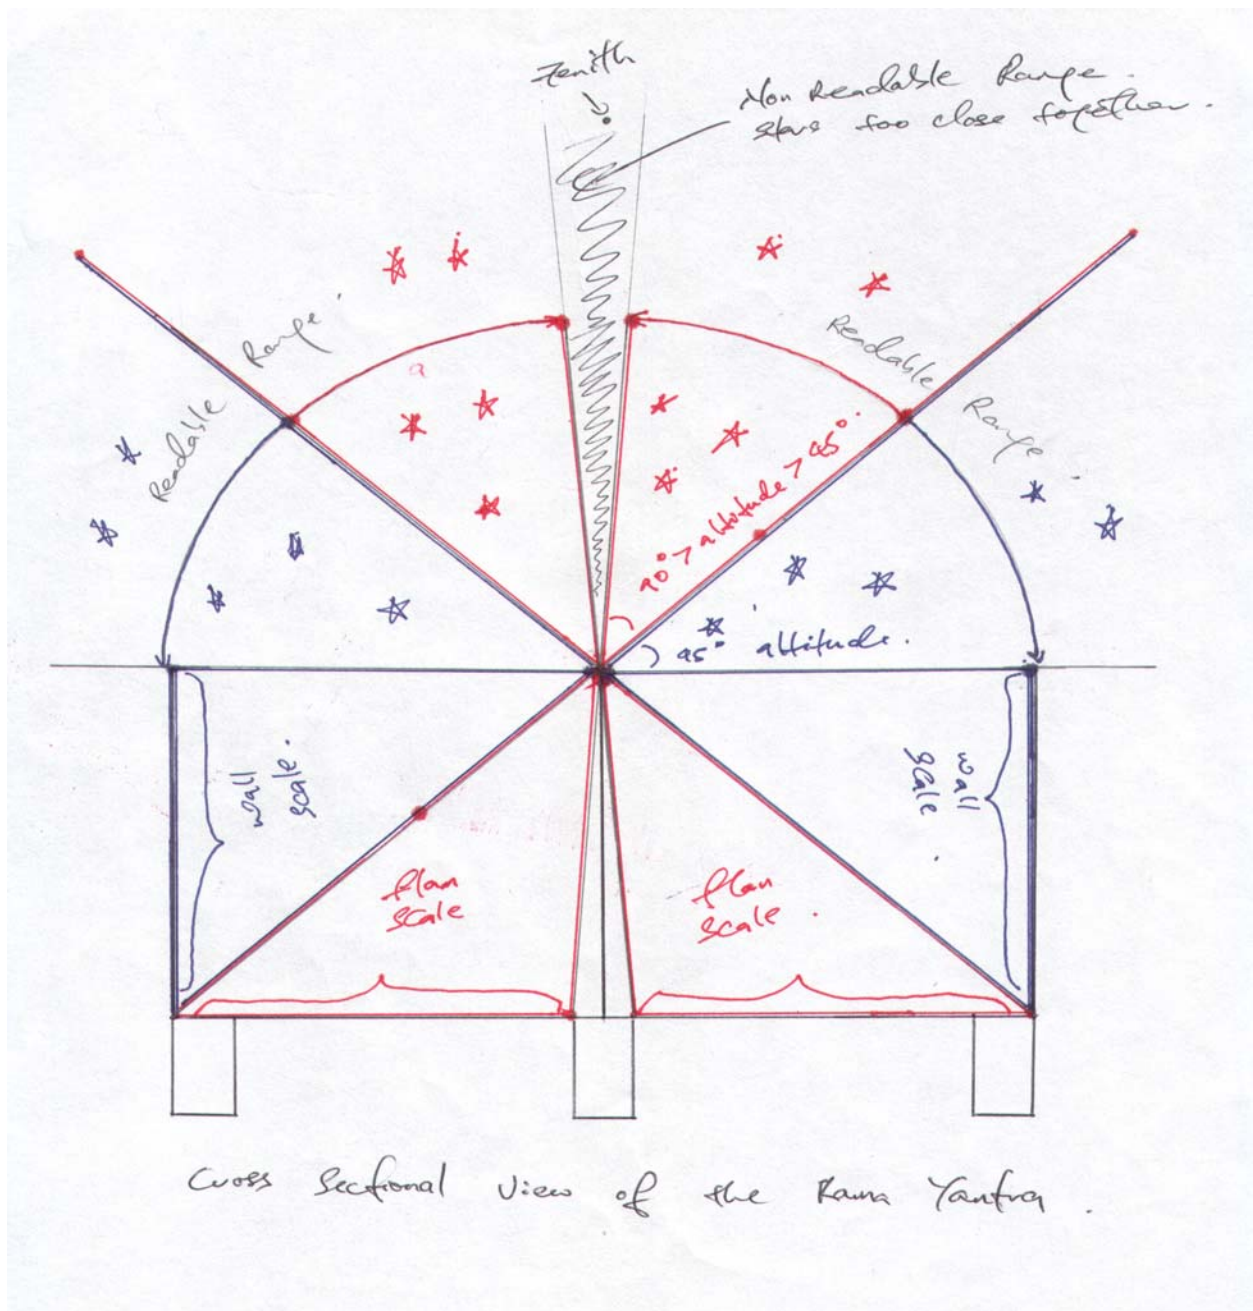 Zenith
Non Readable Range.
stars too close together.
Readable Range.
Readable Range.
90° > altitude > 45°.
45° altitude.
wall
scale.
wall
scale.
Plan
scale
Plan
scale.
Cross Sectional View of the Rama Yantra.